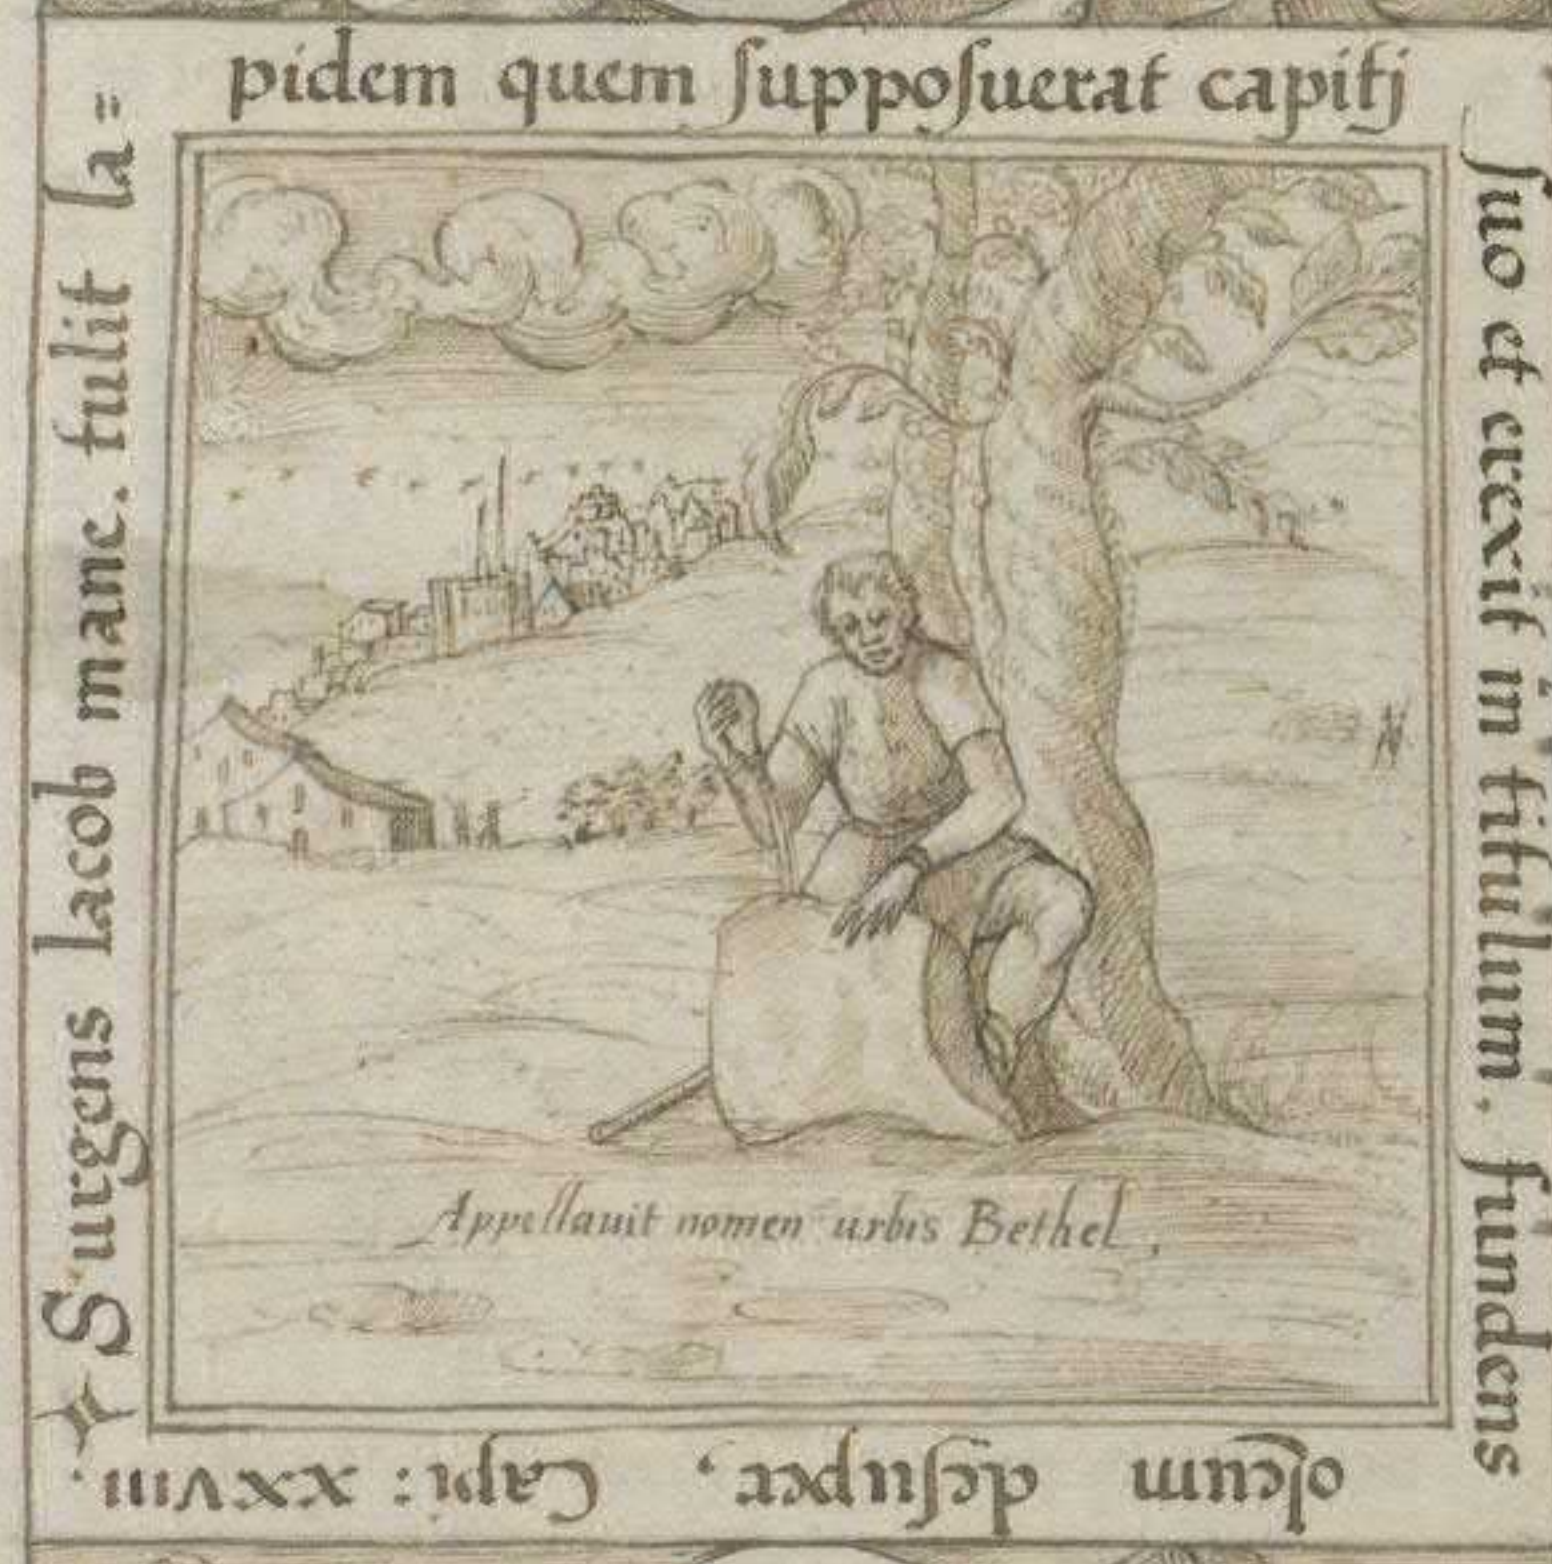 Surgens Iacob mane. tulit la=
pidem quem supposuerat capitj
suo et erexit in titulum. fundens
oleum desuper, Capi: XXVIII.
Appellauit nomen urbis Bethel,